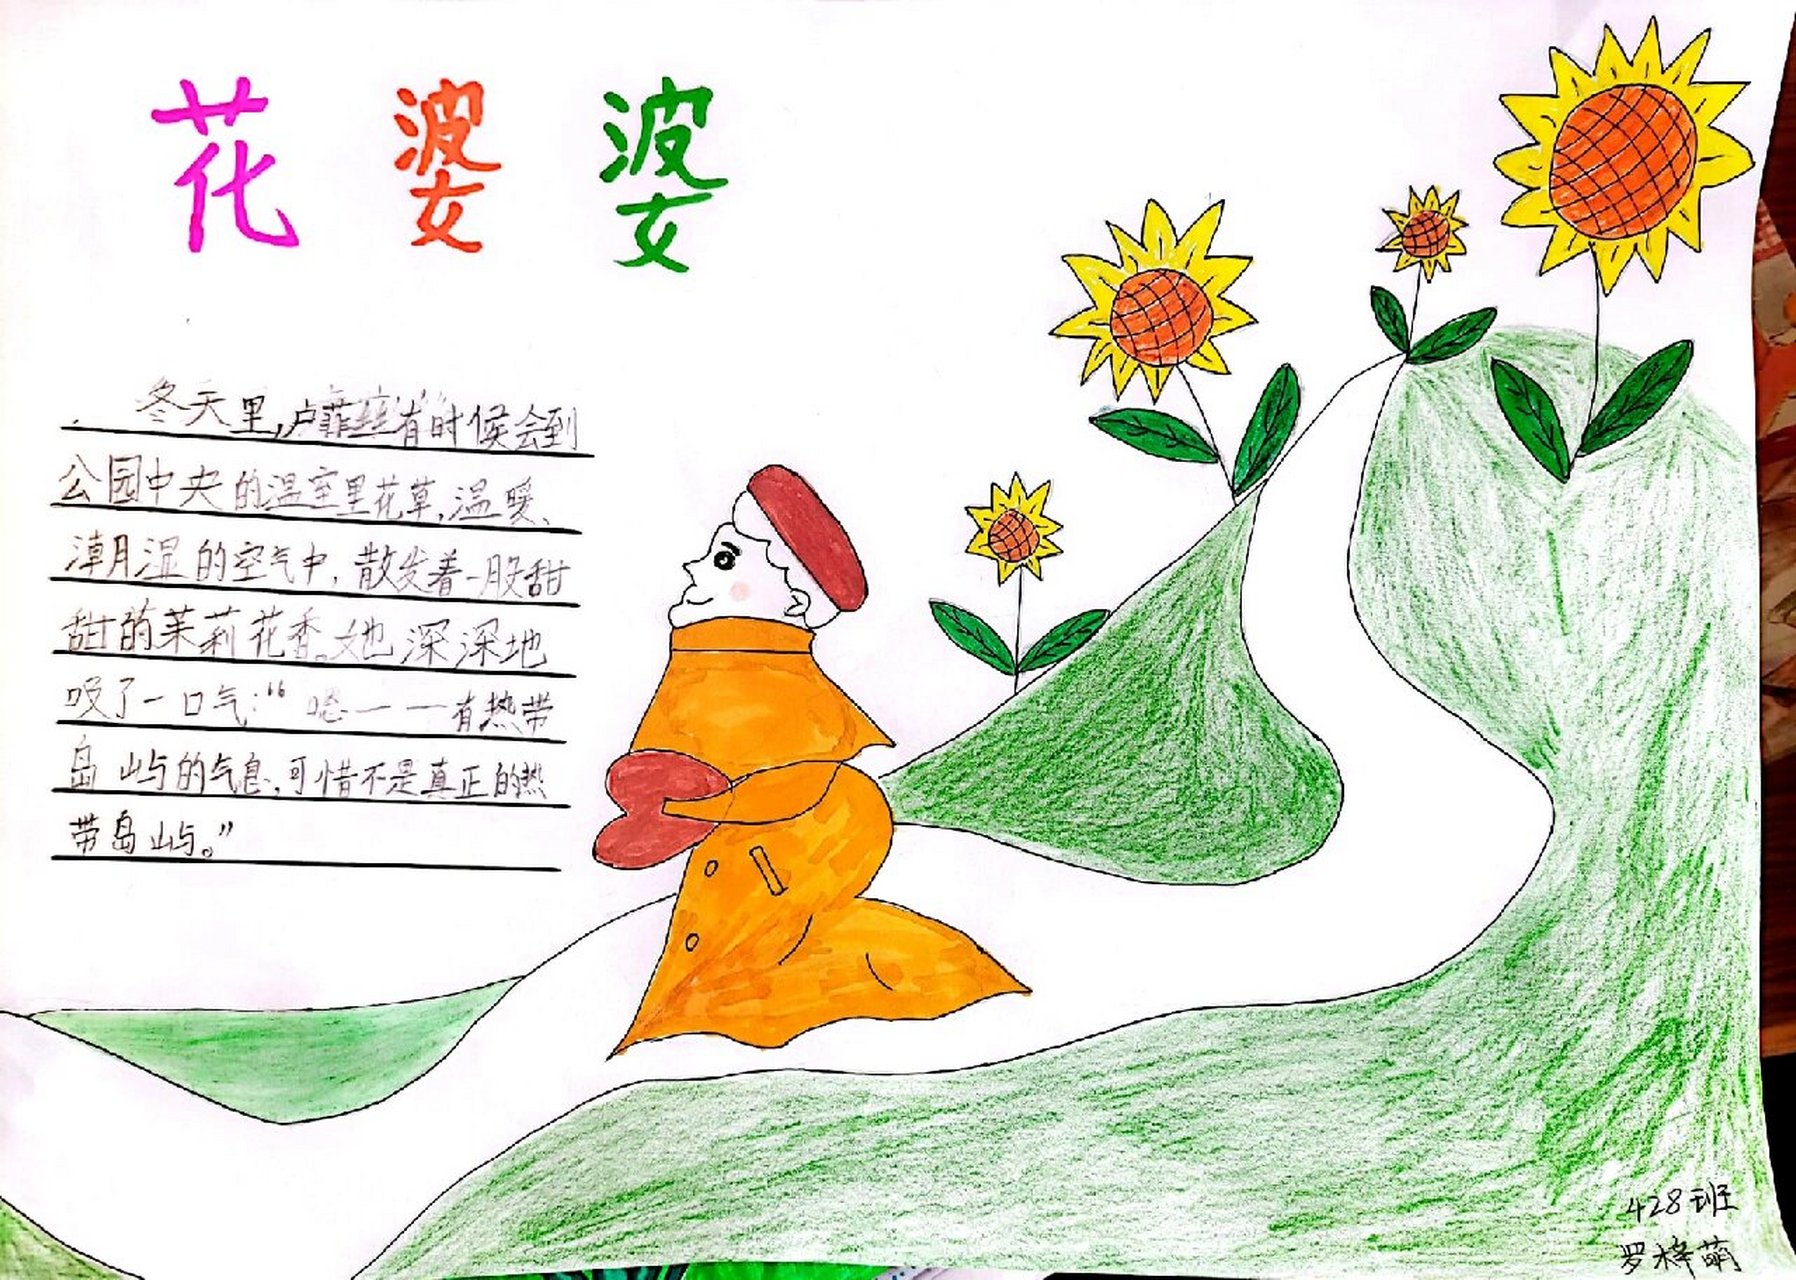 花婆婆
冬天里,卢菲丝有时候会到
公园中央的温室里花草,温暖、
潮湿的空气中,散发着一股甜
甜的茉莉花香。她深深地
吸了一口气:“嗯——有热带
岛屿的气息,可惜不是真正的热
带岛屿。”
428班
罗梓萌